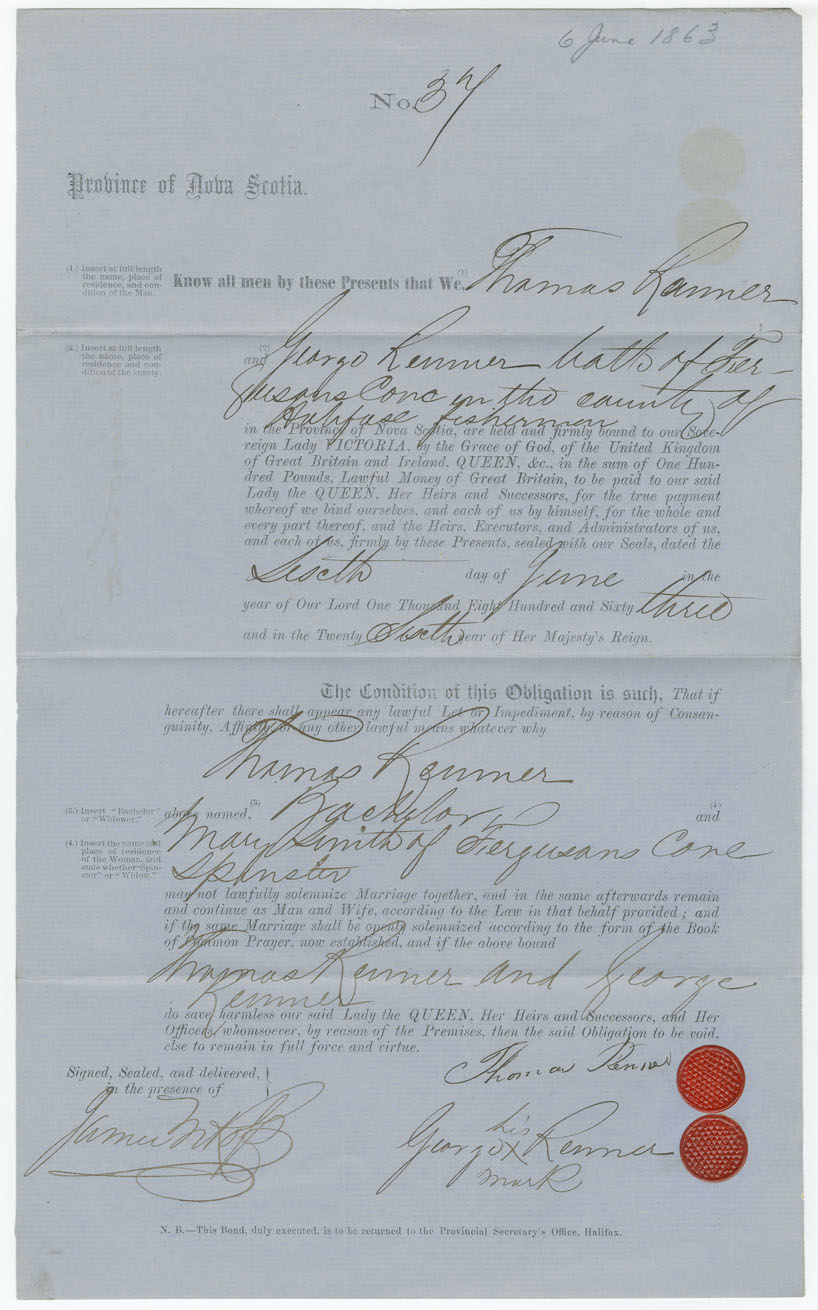 6 June 1863
No. 37
Province of Nova Scotia.
(1.) Insert at full length
the name, place of
residence, and con-
dition of the Man.
Know all men by these Presents that We, (1) Thomas Renner
(2.) Insert at full length
the name, place of
residence and con-
dition of the surety.
and (2) George Renner both of Fer-
gusons Cove in the county of
Halifase fishermen
in the Province of Nova Scotia, are held and firmly bound to our Sove-
reign Lady VICTORIA, by the Grace of God, of the United Kingdom
of Great Britain and Ireland, QUEEN, &c., in the sum of One Hun-
dred Pounds, Lawful Money of Great Britain, to be paid to our said
Lady the QUEEN, Her Heirs and Successors, for the true payment
whereof we bind ourselves, and each of us by himself, for the whole and
every part thereof, and the Heirs, Executors, and Administrators of us,
and each of us, firmly by these Presents, sealed with our Seals, dated the
Siscth day of June in the
year of Our Lord One Thousand Eight Hundred and Sixty three
and in the Twenty Siscth year of Her Majesty's Reign.
The Condition of this Obligation is such, That if
hereafter there shall appear any lawful Let or Impediment, by reason of Consan-
guinity, Affinity, or any other lawful means whatever why
Thomas Renner
(3.) Insert "Bachelor"
or "Widower."
above named, (3) Bachelor (4) and
(4.) Insert the name and
place of residence
of the Woman, and
state whether "Spin-
ster" or "Widow."
Mary Smith of Fergusans Cove
Spinster
may not lawfully solemnize Marriage together, and in the same afterwards remain
and continue as Man and Wife, according to the Law in that behalf provided; and
if the same Marriage shall be openly solemnized according to the form of the Book
of Common Prayer, now established, and if the above bound
Thomas Renner and George
Renner
do save harmless our said Lady the QUEEN, Her Heirs and Successors, and Her
Officers whomsoever, by reason of the Premises, then the said Obligation to be void,
else to remain in full force and virtue.
Signed, Sealed, and delivered,
in the presence of
Thomas Renner
James
his
George X Renner
mark
N. B.—This Bond, duly executed, is to be returned to the Provincial Secretary's Office, Halifax.